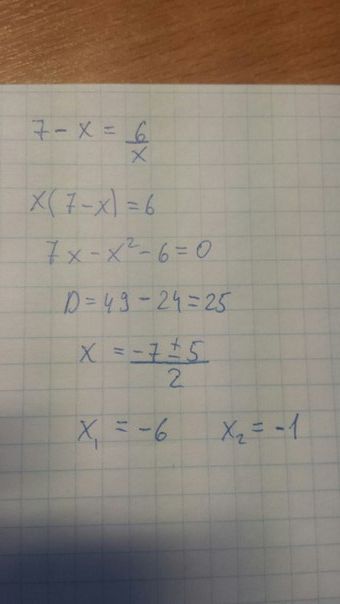 7 - x = 6/x
x(7-x) = 6
7x - x² - 6 = 0
D = 49 - 24 = 25
x = (-7 ± 5)/2
x₁ = -6 x₂ = -1